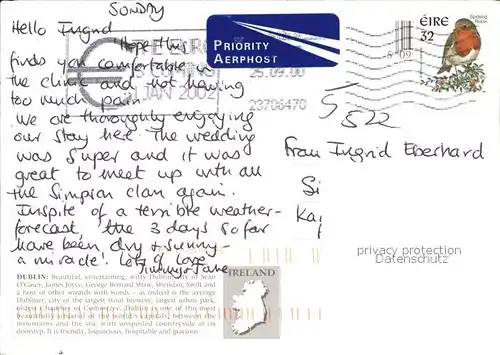 SUNDAY
Hello Ingrid
Hope this
finds you comfortable in
the clinic and not having
too much pain.
We are thoroughly enjoying
our stay here. The wedding
was super and it was
great to meet up with all
the Simpson clan again.
Inspite of a terrible weather-
forecast the 3 days so far
have been dry & sunny -
a miracle! Lots of love
Jane
DUBLIN: Beautiful, entertaining, witty Dublin, city of Sean
O'Casey, James Joyce, George Bernard Shaw, Sheridan, Swift and
a host of other wizards with words – as indeed is the average
Dubliner, city of the largest stout brewery, largest urban park,
oldest Chamber of Commerce. Dublin is one of the most
beautifully situated of the world's capitals, between the
mountains and the sea, with unspoiled countryside at its
doorstep. It is friendly, loquacious, hospitable and gracious.
THE EURO
IS COMING
1 JAN 2002
25.09.00
23706470
PRIORITY
AERPHOST
ÉIRE
32
Spideog
Robin
Frau Ingrid Eberhard
Si
Ka
privacy protection
Datenschutz
IRELAND